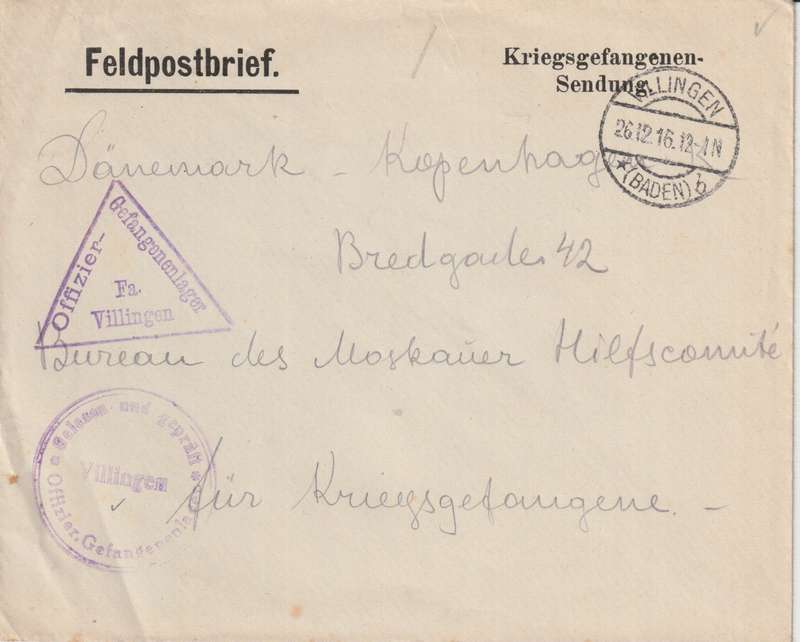 Feldpostbrief.
Kriegsgefangenen-
Sendung.
VILLINGEN
26.12.16.12-1N
* (BADEN) b
Dänemark - Kopenhagen -
Bredgade 42
Offizier-
Gefangenenlager
Fa.
Villingen
Bureau des Moskauer Hilfscomité
für Kriegsgefangene. -
Gelesen und geprüft
Villingen
Offizier-Gefangenenlager